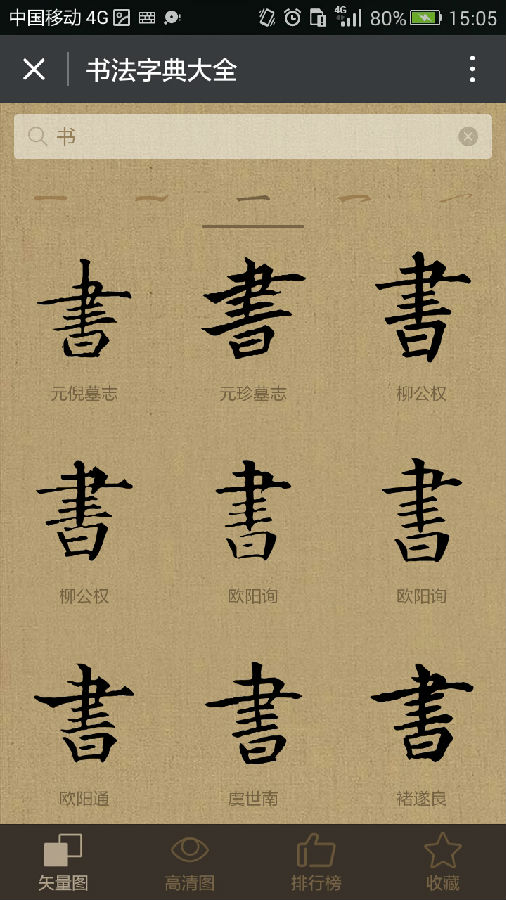 中国移动 4G 4G 80% 15:05
书法字典大全
书
書 書 書
元倪墓志 元珍墓志 柳公权
書 書 書
柳公权 欧阳询 欧阳询
書 書 書
欧阳通 虞世南 褚遂良
矢量图 高清图 排行榜 收藏